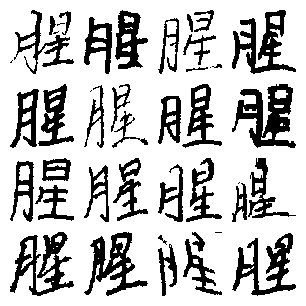 腥腥腥腥
腥腥腥腥
腥腥腥腥
腥腥腥腥